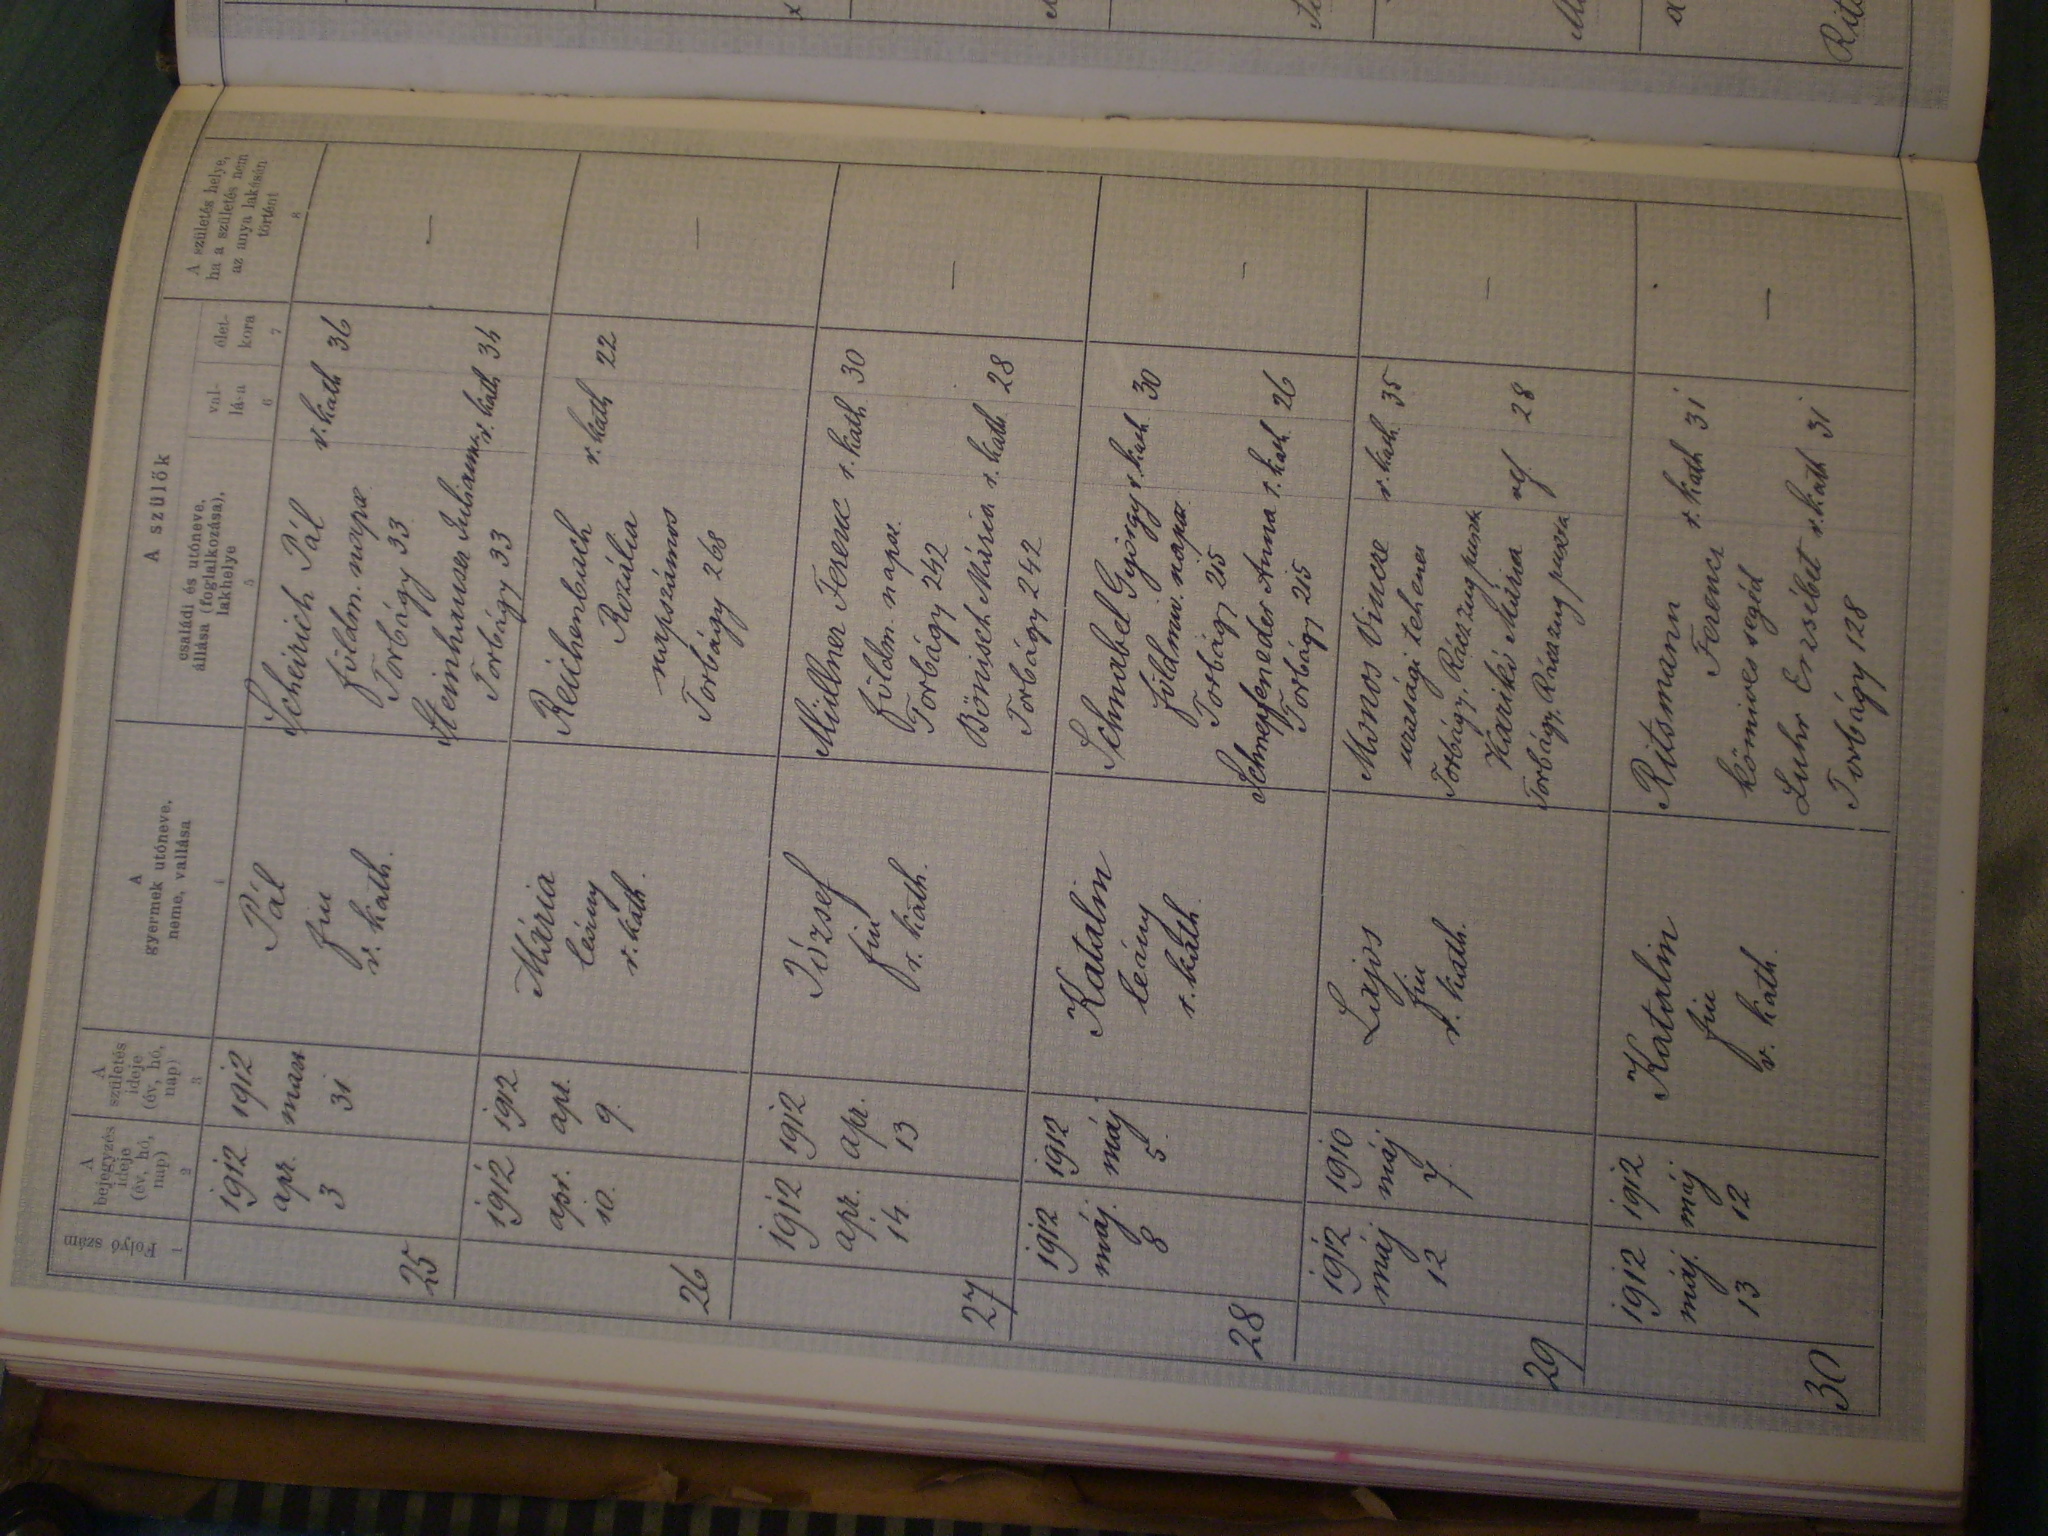 Folyó szám
1
A
bejegyzés
ideje
(év, hó,
nap)
2
A
születés
ideje
(év, hó,
nap)
3
A
gyermek utóneve,
neme, vallása
4
A szülők
családi és utóneve,
állása (foglalkozása),
lakhelye
5
val-
lása
6
élet-
kora
7
A születés helye,
ha a születés nem
az anya lakásán
történt
8
25
1912
apr.
3
1912
marc
31
Pál
fiu
r. kath.
Scheirich Pál r. kath 36
földm. napsz.
Torbágy 33
Steinhauser Julianna r. kath 34
Torbágy 33
—
26
1912
apr.
10.
1912
apr.
9.
Mária
leány
r. kath.
Reichenbach r. kath 22
Rozália
napszámos
Torbágy 268
—
27
1912
apr.
14.
1912
apr.
13
József
fiu
r. kath.
Millner Ferenc r. kath 30
földm. napsz.
Torbágy 242
Bönisch Mária r. kath 28
Torbágy 242
—
28
1912
máj.
8
1912
máj.
5.
Katalin
leány
r. kath.
Schnabel György r. kath. 30
földmiv. napsz.
Torbágy 215
Anna r. kath. 26
Torbágy 215
—
29
1912
máj
12
1910
máj
7.
Lajos
fiu
r. kath.
Mónos Vince r. kath. 35
urasági tehenes
Torbágy, Ráczzug puszta
Karikó Mária ref 28
Torbágy, Ráczzug puszta
—
30
1912
máj.
13
1912
máj
12
Katalin
fiu
r. kath.
Ritsmann
Ferencz r. kath 31
kőmives segéd
Luhr Erzsébet r. kath 31
Torbágy 128
—